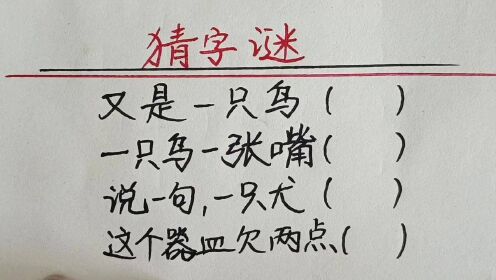 猜字谜
又是一只鸟（ ）
一只鸟一张嘴（ ）
说一句，一只犬（ ）
这个器皿欠两点（ ）